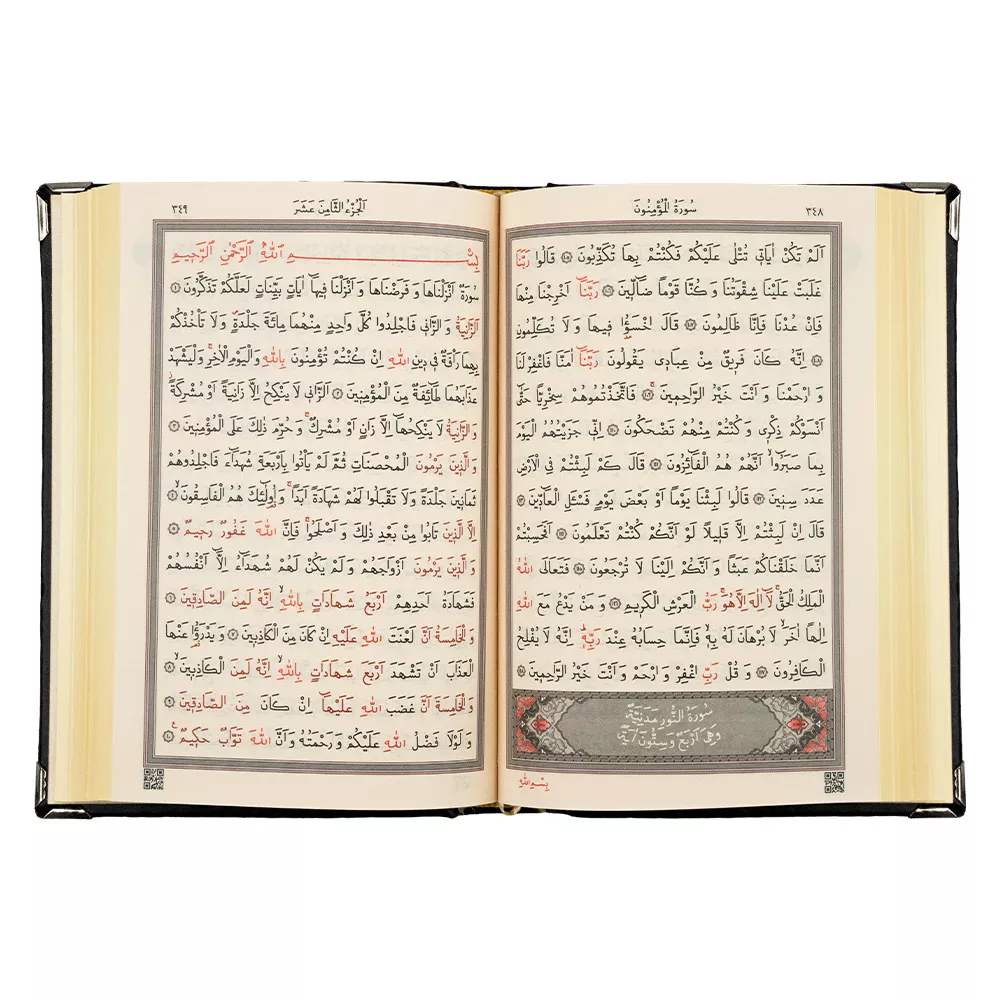 ٣٤٨ سُورَةُ الْمُؤْمِنُونَ
اَلَمْ تَكُنْ اٰيَات۪ي تُتْلٰى عَلَيْكُمْ فَكُنْتُمْ بِهَا تُكَذِّبُونَ ﴿١٠٥﴾ قَالُوا رَبَّنَا
غَلَبَتْ عَلَيْنَا شِقْوَتُنَا وَكُنَّا قَوْمًا ضَٓالّ۪ينَ ﴿١٠٦﴾ رَبَّنَٓا اَخْرِجْنَا مِنْهَا
فَاِنْ عُدْنَا فَاِنَّا ظَالِمُونَ ﴿١٠٧﴾ قَالَ اخْسَؤُ۫ا ف۪يهَا وَلَا تُكَلِّمُونِ
﴿١٠٨﴾ اِنَّهُ كَانَ فَر۪يقٌ مِنْ عِبَاد۪ي يَقُولُونَ رَبَّنَٓا اٰمَنَّا فَاغْفِرْ لَنَا
وَارْحَمْنَا وَاَنْتَ خَيْرُ الرَّاحِم۪ينَ ﴿١٠٩﴾ فَاتَّخَذْتُمُوهُمْ سِخْرِيًّا حَتّٰٓى
اَنْسَوْكُمْ ذِكْر۪ي وَكُنْتُمْ مِنْهُمْ تَضْحَكُونَ ﴿١١٠﴾ اِنّ۪ي جَزَيْتُهُمُ الْيَوْمَ
بِمَا صَبَرُٓوا اَنَّهُمْ هُمُ الْفَٓائِزُونَ ﴿١١١﴾ قَالَ كَمْ لَبِثْتُمْ فِي الْاَرْضِ
عَدَدَ سِن۪ينَ ﴿١١٢﴾ قَالُوا لَبِثْنَا يَوْمًا اَوْ بَعْضَ يَوْمٍ فَسْـَٔلِ الْعَٓادّ۪ينَ ﴿١١٣﴾
قَالَ اِنْ لَبِثْتُمْ اِلَّا قَل۪يلًا لَوْ اَنَّكُمْ كُنْتُمْ تَعْلَمُونَ ﴿١١٤﴾ اَفَحَسِبْتُمْ
اَنَّمَا خَلَقْنَاكُمْ عَبَثًا وَاَنَّكُمْ اِلَيْنَا لَا تُرْجَعُونَ ﴿١١٥﴾ فَتَعَالَى اللّٰهُ
الْمَلِكُ الْحَقُّۚ لَٓا اِلٰهَ اِلَّا هُوَۚ رَبُّ الْعَرْشِ الْكَر۪يمِ ﴿١١٦﴾ وَمَنْ يَدْعُ مَعَ اللّٰهِ
اِلٰهًا اٰخَرَۙ لَا بُرْهَانَ لَهُ بِه۪ۙ فَاِنَّمَا حِسَابُهُ عِنْدَ رَبِّه۪ۜ اِنَّهُ لَا يُفْلِحُ
الْكَافِرُونَ ﴿١١٧﴾ وَقُلْ رَبِّ اغْفِرْ وَارْحَمْ وَاَنْتَ خَيْرُ الرَّاحِم۪ينَ ﴿١١٨﴾
سُورَةُ النُّورِ مَدَنِيَّةٌ
وَهِيَ اَرْبَعٌ وَسِتُّونَ اٰيَةً
بِسْمِ اللّٰهِ
اَلْجُزْءُ الثَّامِنَ عَشَرَ ٣٤٩
بِسْمِ اللّٰهِ الرَّحْمٰنِ الرَّح۪يمِ
سُورَةٌ اَنْزَلْنَاهَا وَفَرَضْنَاهَا وَاَنْزَلْنَا ف۪يهَٓا اٰيَاتٍ بَيِّنَاتٍ لَعَلَّكُمْ تَذَكَّرُونَ ﴿١﴾
اَلزَّانِيَةُ وَالزَّان۪ي فَاجْلِدُوا كُلَّ وَاحِدٍ مِنْهُمَا مِائَةَ جَلْدَةٍۖ وَلَا تَأْخُذْكُمْ
بِهِمَا رَأْفَةٌ ف۪ي د۪ينِ اللّٰهِ اِنْ كُنْتُمْ تُؤْمِنُونَ بِاللّٰهِ وَالْيَوْمِ الْاٰخِرِۚ وَلْيَشْهَدْ
عَذَابَهُمَا طَٓائِفَةٌ مِنَ الْمُؤْمِن۪ينَ ﴿٢﴾ اَلزَّان۪ي لَا يَنْكِحُ اِلَّا زَانِيَةً اَوْ مُشْرِكَةًۘ
وَالزَّانِيَةُ لَا يَنْكِحُهَٓا اِلَّا زَانٍ اَوْ مُشْرِكٌۚ وَحُرِّمَ ذٰلِكَ عَلَى الْمُؤْمِن۪ينَ ﴿٣﴾
وَالَّذ۪ينَ يَرْمُونَ الْمُحْصَنَاتِ ثُمَّ لَمْ يَأْتُوا بِاَرْبَعَةِ شُهَدَٓاءَ فَاجْلِدُوهُمْ
ثَمَان۪ينَ جَلْدَةً وَلَا تَقْبَلُوا لَهُمْ شَهَادَةً اَبَدًاۚ وَاُو۬لٰٓئِكَ هُمُ الْفَاسِقُونَ ﴿٤﴾
اِلَّا الَّذ۪ينَ تَابُوا مِنْ بَعْدِ ذٰلِكَ وَاَصْلَحُواۚ فَاِنَّ اللّٰهَ غَفُورٌ رَح۪يمٌ ﴿٥﴾
وَالَّذ۪ينَ يَرْمُونَ اَزْوَاجَهُمْ وَلَمْ يَكُنْ لَهُمْ شُهَدَٓاءُ اِلَّٓا اَنْفُسُهُمْ
فَشَهَادَةُ اَحَدِهِمْ اَرْبَعُ شَهَادَاتٍ بِاللّٰهِۙ اِنَّهُ لَمِنَ الصَّادِق۪ينَ ﴿٦﴾
وَالْخَامِسَةُ اَنَّ لَعْنَتَ اللّٰهِ عَلَيْهِ اِنْ كَانَ مِنَ الْكَاذِب۪ينَ ﴿٧﴾ وَيَدْرَؤُ۬ا عَنْهَا
الْعَذَابَ اَنْ تَشْهَدَ اَرْبَعَ شَهَادَاتٍ بِاللّٰهِۙ اِنَّهُ لَمِنَ الْكَاذِب۪ينَۙ ﴿٨﴾
وَالْخَامِسَةَ اَنَّ غَضَبَ اللّٰهِ عَلَيْهَٓا اِنْ كَانَ مِنَ الصَّادِق۪ينَ ﴿٩﴾
وَلَوْلَا فَضْلُ اللّٰهِ عَلَيْكُمْ وَرَحْمَتُهُ وَاَنَّ اللّٰهَ تَوَّابٌ حَك۪يمٌ۟ ﴿١٠﴾